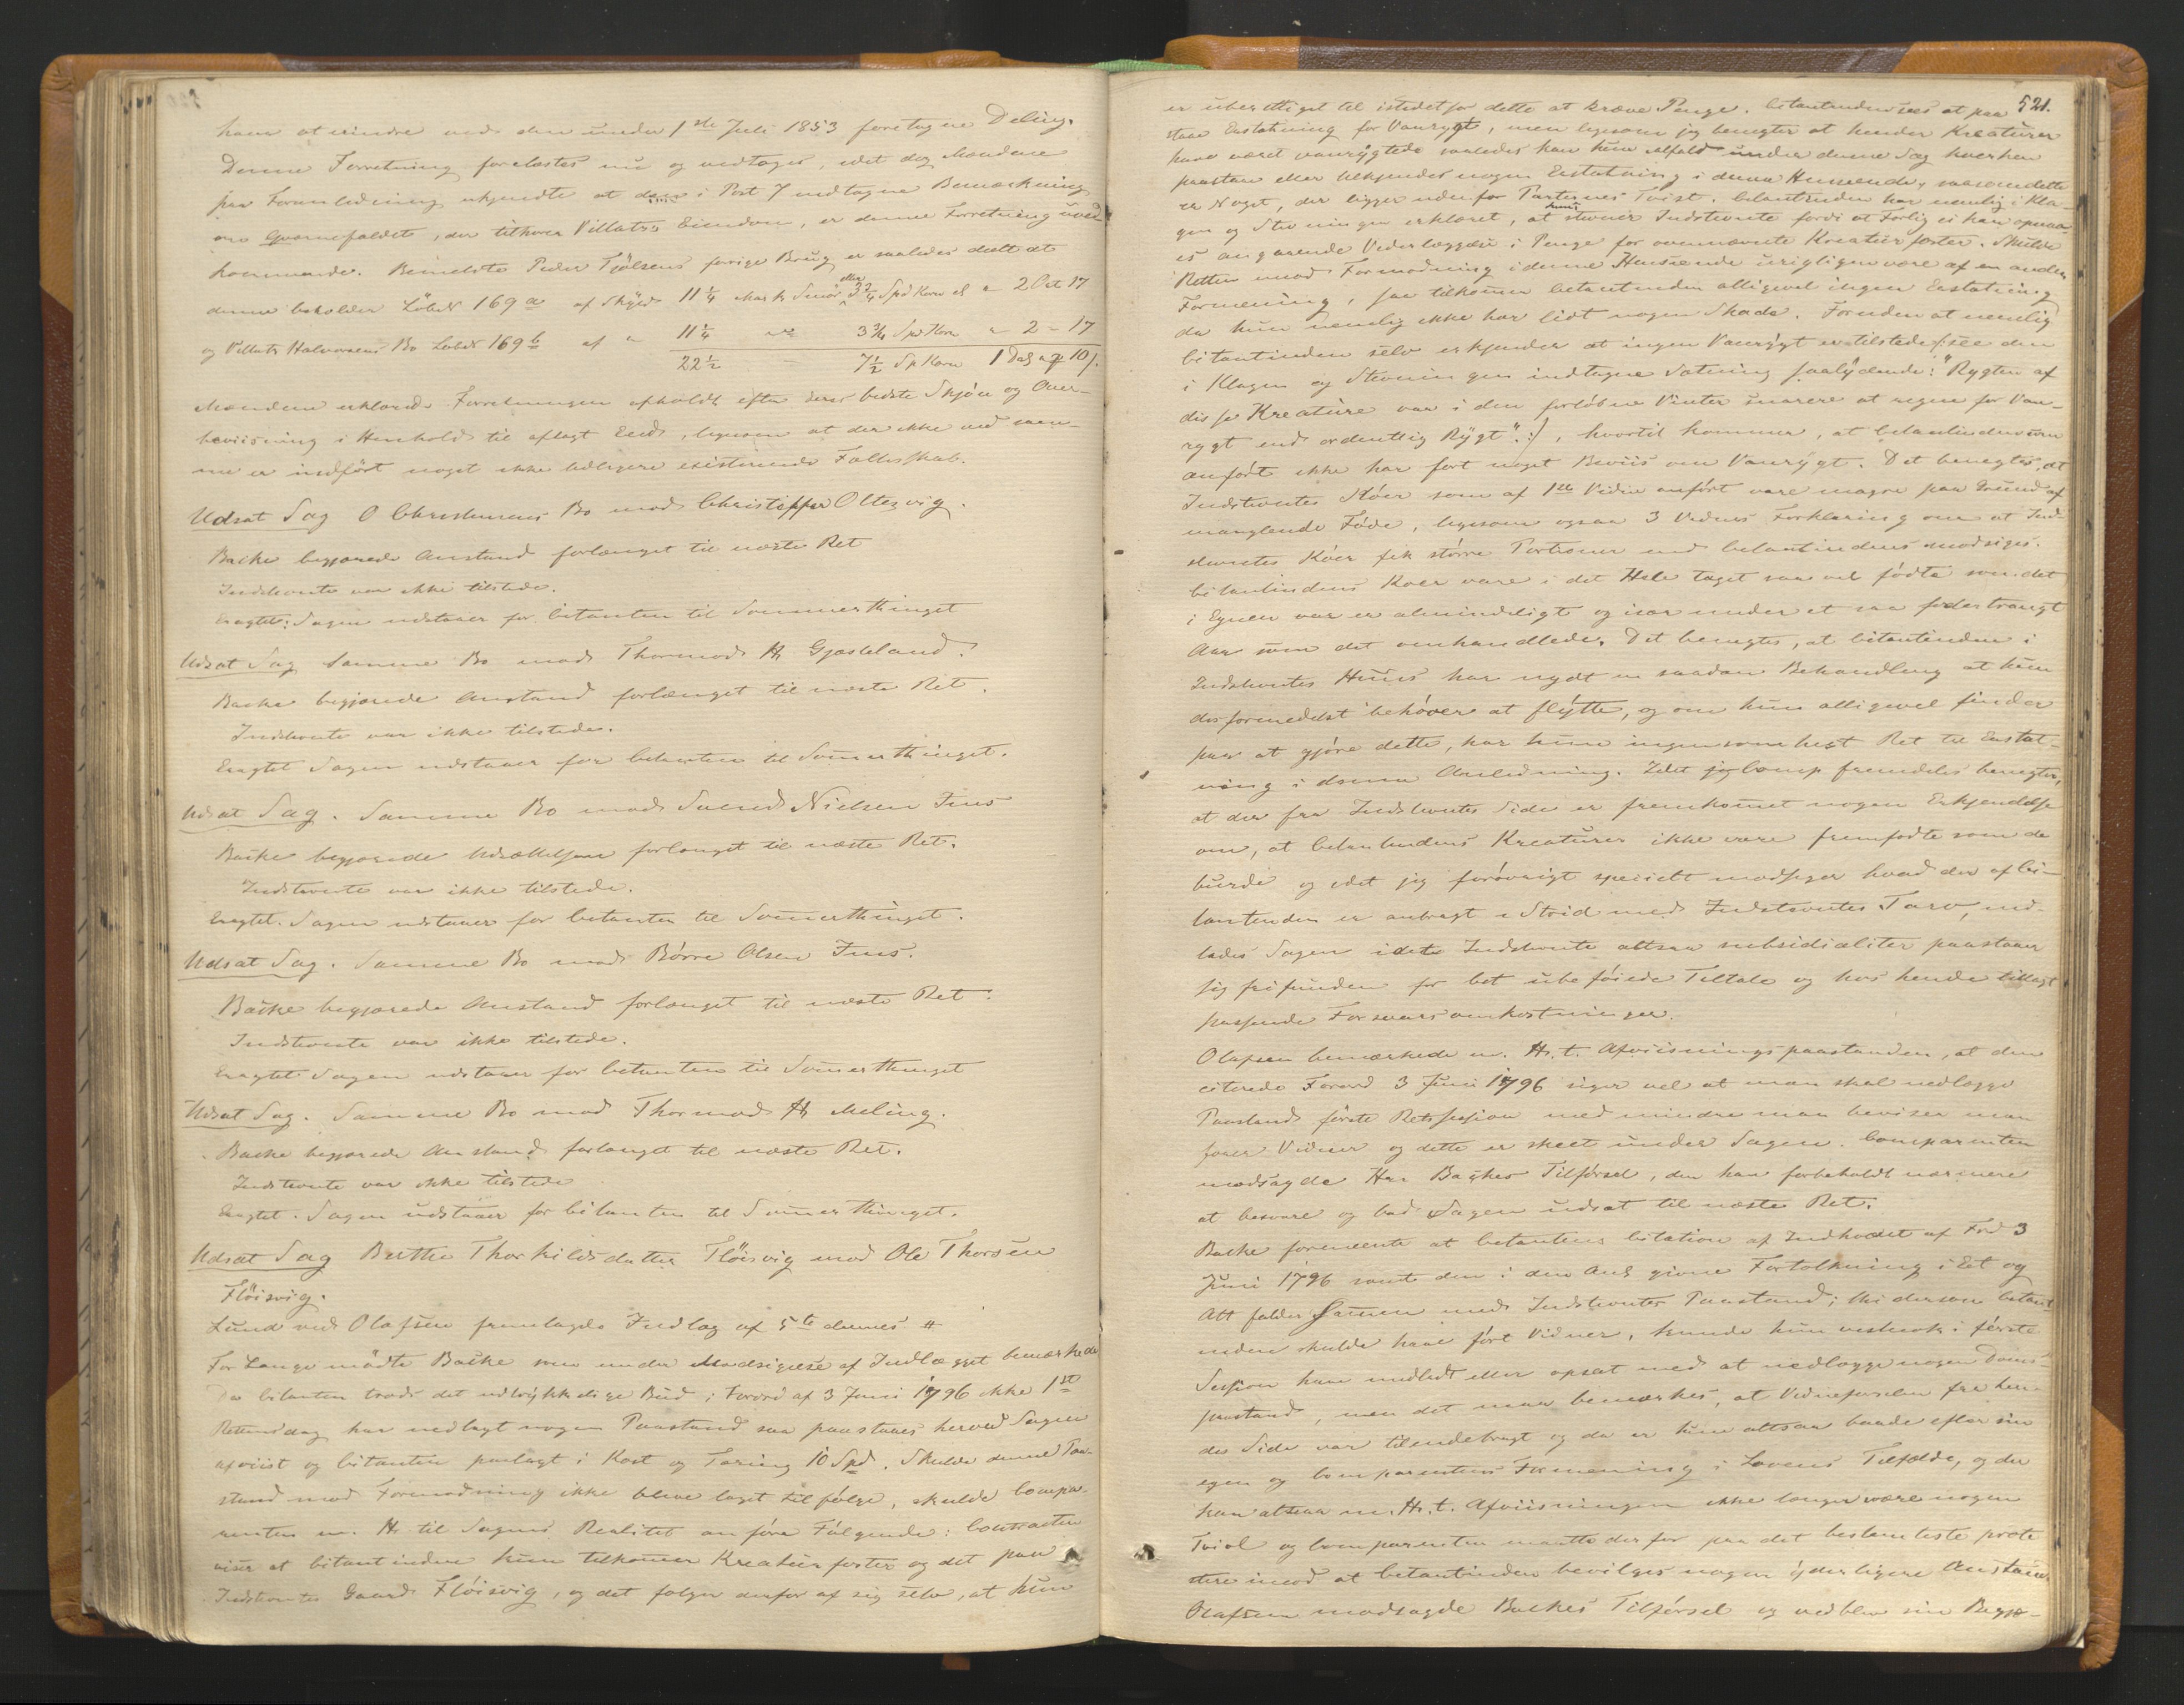 ham at erindre ved den under 1ste Juli 1853 foretagne Deling.
Denne Forretning forelæstes nu og vedtages, idet dog Mændene
paa Foranledning erkjendte at den i Post 7 indtagne Bemærkning
om Qværnefaldet, der tilhører Villats Eiendom, er denne Forretning uved-
kommende. Bemeldte Peder Tjølsens forrige Brug er saaledes deelt at
denne beholder Løbeℕ 169 a af Skyld 11¼ Mark Smør eller 3¾ Spd Korn el 2 Ort 17
og Villats Halvorsens Bo Løbeℕ 169 b af " 11¼ 3¾ Spd Korn " 2 - 17
22½ - 7½ Sp Korn 1 Dal 10 s.
Mændene erklærede Forretningen afholdt efter deres bedste Skjøn og Over-
beviisning i Henhold til aflagt Eed, ligesom at der ikke ved sam-
me er indført noget ikke tidligere existerende Fællesskab.
Udsat Sag O Christensens Bo mod Christopher Oltesvig.
Backe begjærede Anstand forlænget til næste Ret
Indstevnte var ikke tilstede.
Eragtet: Sagen udstaaer for Citanten til Sommerthinget
Udsat Sag Samme Bo mod Thormod H Gjæsteland.
Backe begjærede Anstand forlænget til næste Ret.
Indstevnte var ikke tilstede.
Eragtet Sagen udstaaer for Citanten til Som̄erthinget.
Udsat Sag. Samme Bo mod Svend Nielsen Fuus
Backe begjærede Udsættelsen forlænget til næste Ret.
Indstevnte var ikke tilstede.
Eragtet. Sagen udstaaer for Citanten til Som̄erthinget.
Udsat Sag. Samme Bo mod Børre Olsen Fuus.
Backe begjærede Anstand forlænget til næste Ret.
Indstevnte var ikke tilstede.
Eragtet Sagen udstaaer for Citanten til Som̄erthinget
Udsat Sag. Samme Bo mod Thormod H Meling.
Backe begjærede Anstand forlænget til næste Ret.
Indstevnte var ikke tilstede
Eragtet. Sagen udstaaer for Citanten til Som̄erthinget.
Udsat Sag Berthe Thorkildsdatter Fløisvig mod Ole Thorsen
Fløisvig.
Lund ved Olafsen fremlagde Indlæg af 5te dennes #
For Lange mødte Backe som under Modsigelse af Indlægget bemærkede
Da Citanten trods det udtrykkelige Bud i Forord af 3 Juni 1796 ikke 1ste
Rettensdag har nedlagt nogen Paastand saa paastaaes herved Sagen
afviist og Citanten paalagt i Kost og Tæring 10 Spd. Skulde denne Paa-
stand mod Formodning ikke blive taget tilfølge, skulde Compa-
renten m. H til Sagens Realitet anføre Følgende: Contracten
viser at Citantinden kun tilkom̄er Kreaturfoster og det paa
Indstevntes Gaard Fløisvig, og det følger derfor af sig selv, at hun
521.
er uberettiget til istedetfor dette at kræve Penge. Citantinden sees at paa-
staae Erstatning for Vanrygt, men ligesom jeg benegter at hendes Kreaturer
have været vanrygtede saaledes kan hun ialfald under denne Sag hverken
paastaa eller tilkjendes nogen Erstatning i denne Henseende, saasom dette
er Noget, der ligger udenfor Parternes Tvist. Citantinden har nemlig i Kla-
gen og Stevningen erklæret, at hun stevner Indstevnte fordi at Forlig ei kan opnaa-
es angaaende Vederlæggelse i Penge for ovennævnte Kreaturfoster. Skulde
Retten mod Formodning i denne Henseende urigtigen være af en anden
Formening, saa tilkom̄er Citantinden alligevel ingen Erstatning
da hun nemlig ikke har lidt nogen Skade. Foruden at nemlig
Citantinden selv erkjender at ingen Vanrygt er tilstede /: see den
i Klagen og Stevningen indtagne Sætning saalydende: "Rygten af
disse Kreature var i den forløbne Vinter snarere at regne for Van-
rygt end ordentlig Rygt" :/, hvortil kommer, at Citantinden som
anført ikke har ført noget Beviis om Vanrygt. Det benegtes, at
Indstevntes Køer som af 1ste Vidne anført vare magre paa Grund af
manglende Føde, ligesom ogsaa 3 Vidnes Forklaring om at Ind-
stevntes Køer fik større Portioner end Citantindens modsiges.
Citantindens Køer vare i det Hele taget saa vel fødte som det
i Egnen var er almindeligt og især under et saa foderstrangt
Aar som det omhandlede. Det benegtes, at Citantinden i
Indstevntes Huus har nydt en saadan Behandling at hun
derformedelst behøver at flytte, og om hun alligevel finder
paa at gjøre dette, har hun ingensomhelst Ret til Erstat-
ning i denne Anledning. Idet jeg Comp fremdeles benegter,
at der fra Indstevntes Side er fremkom̄et nogen Erkjendelse
om, at Citantindens Kreaturer ikke vare fremfødte som de
burde og idet jeg forøvrigt specielt modsiger hvad der af Ci-
tantinden er anbragt i Strid med Indstevntes Tarv, ind-
lades Sagen idet Indstevnte altsaa subsidialiter paastaaer
sig frifunden for Cit ubeføiede Tiltale og hos hende tillagt
passende Forsvarsomkostninger.
Olafsen bemærkede m. H. t. Afviisningspaastanden, at den
citerede Forord 3 Juni 1796 siger vel at man skal nedlægge
Paastand første Retssession med mindre man beviser man
fører Vidner og dette er skeet under Sagen. Comparenten
modsagde Hr Backes Tilførsel, den han forbeholdt nærmere
at besvare og bad Sagen udsat til næste Ret.
Backe formeente at Citantens Citation af Indholdet af Frd 3
Juni 1796 samt den i den Anl givne Fortolkning i Eet og
Alt falder sam̄en med Indstevntes Paastand; thi dersom Citant-
inden skulde have ført Vidner, kunde hun vistnok i første
Session have undladt eller opsat med at nedlægge nogen Doms-
paastand, men det maa bemærkes, at Vidneførselen fra hen-
des Side var tilendebragt og da er hun altsaa baade efter sin
egen og Comparentens Formening i Lovens Tilfælde, og der
kan altsaa m. H. t. Afviisningen ikke længer være nogen
Tvivl og Comparenten maatte derfor paa det bestemteste prote-
stere imod at Citantinden bevilges nogen yderligere Anstand
Olafsen modsagde Backes Tilførsel og vedblev sin Begjæ-